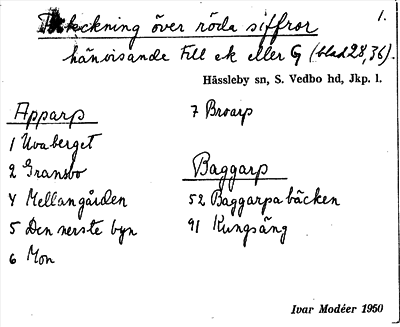 1.
Täckning över röda siffror
hänvisande till ek eller G (blad 28, 36).
Hässleby sn, S. Vedbo hd, Jkp. l.
Apparp
1 Uvaberget
2 Gransbo
4 Mellangården
5 Den nerste byn
6 Mon
7 Broarp
Baggarp
52 Baggarpabäcken
91 Kungsäng
Ivar Modéer 1950